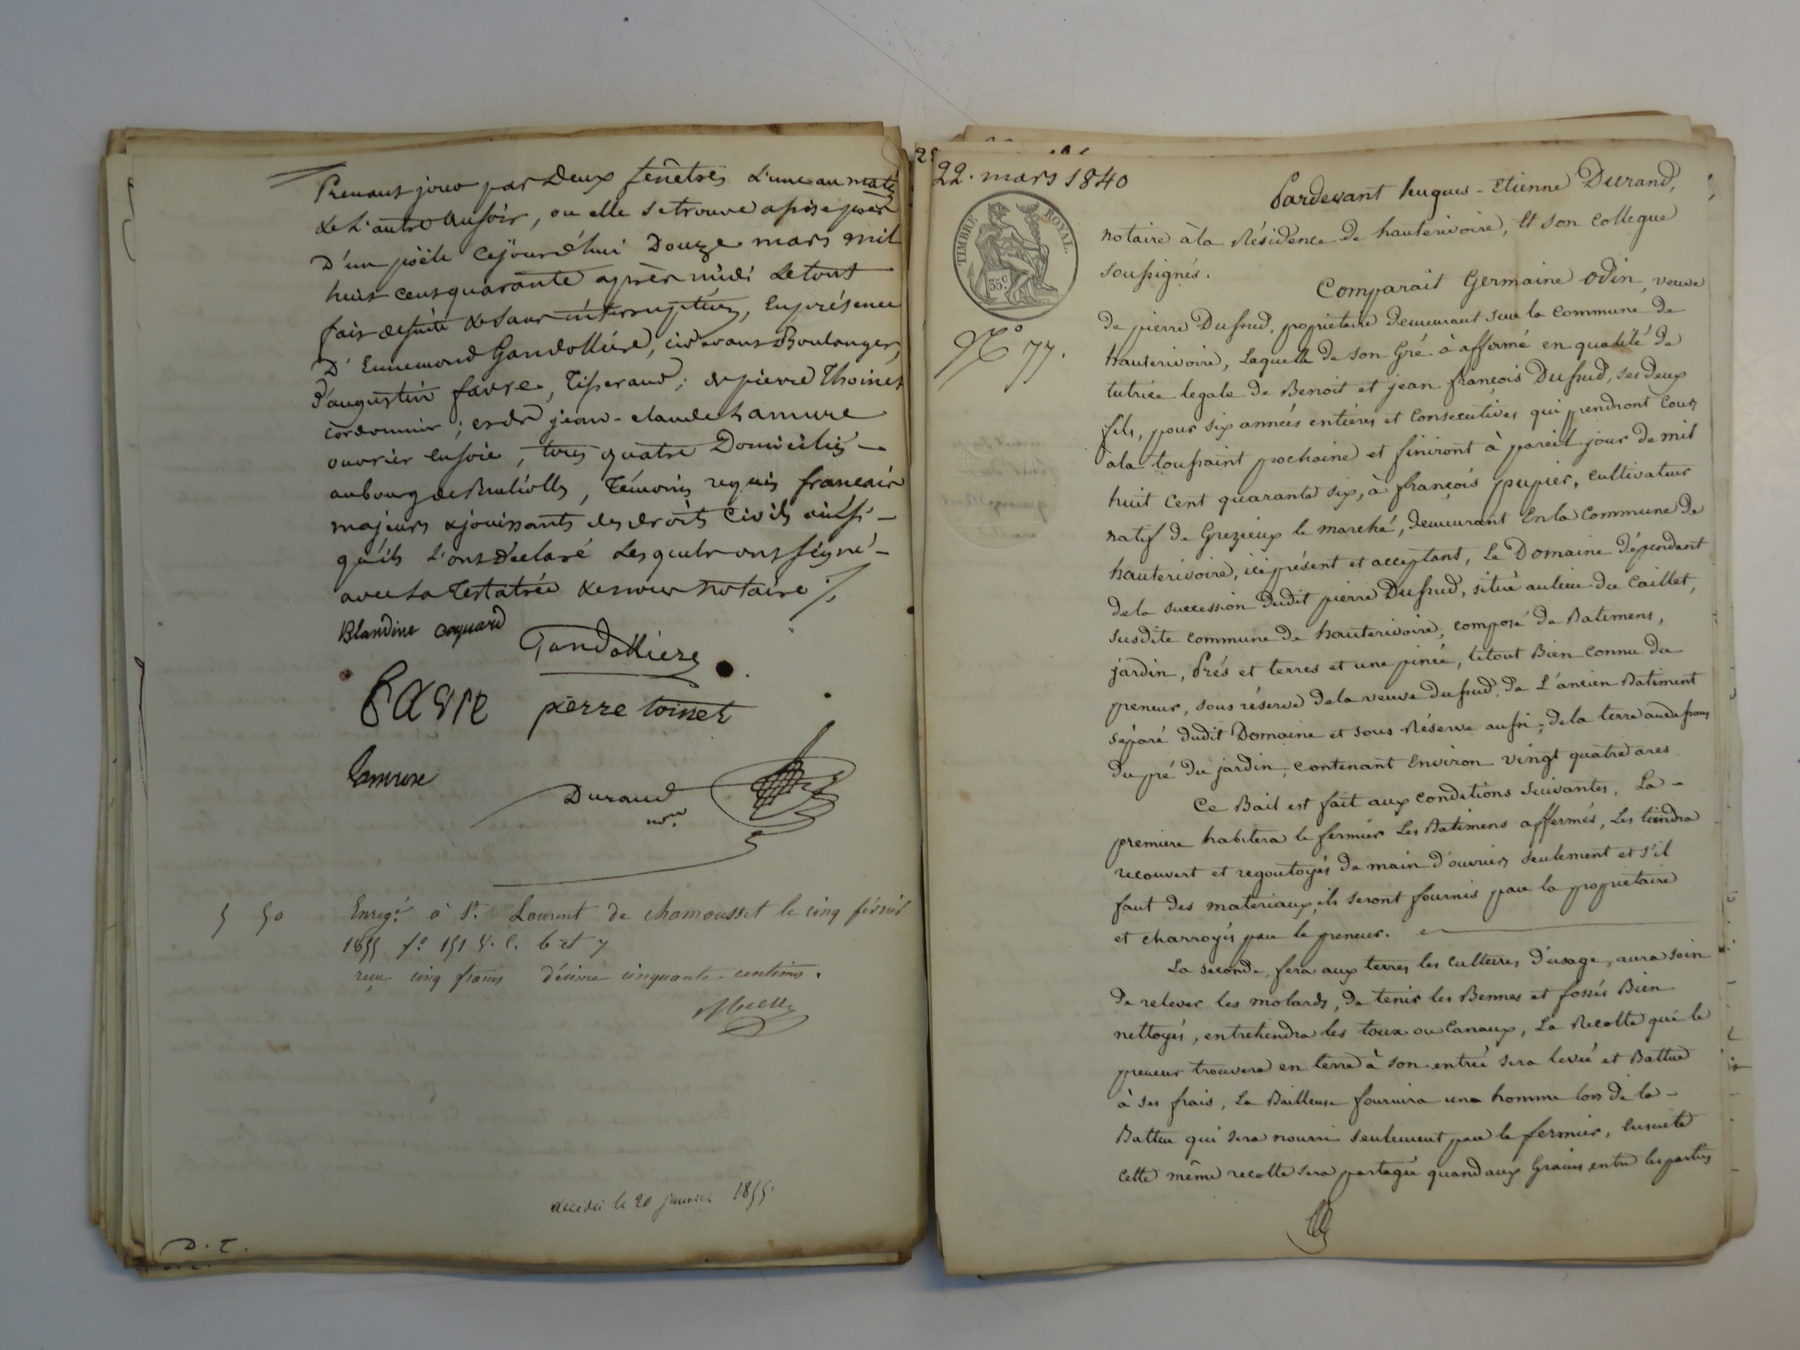 Prenant jour par deux fenêtres L'une au matin
de L'autre au soir, ou elle se trouve assise près
D'un poële Cejourd'hui Douze mars mil
huit cent quarante après midi Le tout
fait de suite et sans interruption, En présence
D'Ennemond Gandollière, Boulanger,
d'augustin favre, Tisserand; de pierre Thoinet
cordonnier; et de jean-claude Lamure
ouvrier en soie, tous quatre Domiciliés
au bourg de Brullolles, Témoins requis français
majeurs et jouissants des droits Civils ainsi
qu'ils L'ont déclaré Lesquels ont signé
avec La Testatrice et nous notaire
Blandine coquard
Gandollière
FAVRE pierre toinet
Lamure
Durand
nore
5 50 Enregé à St. Laurent de chamousset le cinq février
1855 fo 151 V. C. 6 et 7
reçu cinq francs décime cinquante centimes.
décédée le 20 janvier 1855.
D. T.
22. mars 1840
TIMBRE ROYAL
35c
No 77.
Pardevant hugues-Etienne Durand,
notaire à la Résidence de hauterivoire, Et son collegue
soussignés.
Comparait Germaine Odin, veuve
de pierre Dufud, propriétaire demeurant sur la commune de
hauterivoire, Laquelle de son Gré à affermé en qualité de
tutrice legale de Benoit et jean françois Dufud, ses deux
fils, pour six années entières et consecutives qui prendront cours
à la toussaint prochaine et finiront à pareil jour de mil
huit cent quarante six, à françois pupier, cultivateur
natif de Grezieux le marché, demeurant En la commune de
hauterivoire, ici présent et acceptant, Le Domaine dépendant
de la succession dudit pierre Dufud, situé au lieu du Caillet,
susdite commune de hauterivoire, composé de Batimens,
jardin, Prés et terres et une pinée, le tout Bien connu du
preneur, sous réserve de la veuve Dufud, de L'ancien Batiment
séparé dudit Domaine et sous Réserve aussi, de la terre au dessous
du pré du jardin, contenant Environ vingt quatre ares.
Ce Bail est fait aux conditions suivantes, La
premiere habitera le fermier Les Batimens affermés, Les tiendra
recouvert et regoutoyés de main d'ouvriers seulement et s'il
faut des materiaux, ils seront fournis par la propriétaire
et charroyés par le preneur.
La seconde, fera aux terres les cultures d'usage, aura soin
de relever les molards, de tenir les Bennes et fossés Bien
nettoyés, entretiendra les toux ou Canaux, La Recolte que le
preneur trouvera en terre à son entrée sera levée et Battue
à ses frais, La Bailleuse fournira un homme lors de la
Battue qui sera nourri seulement par le fermier, Ensuite
cette même recolte sera partagée quand aux Grains entre les parties